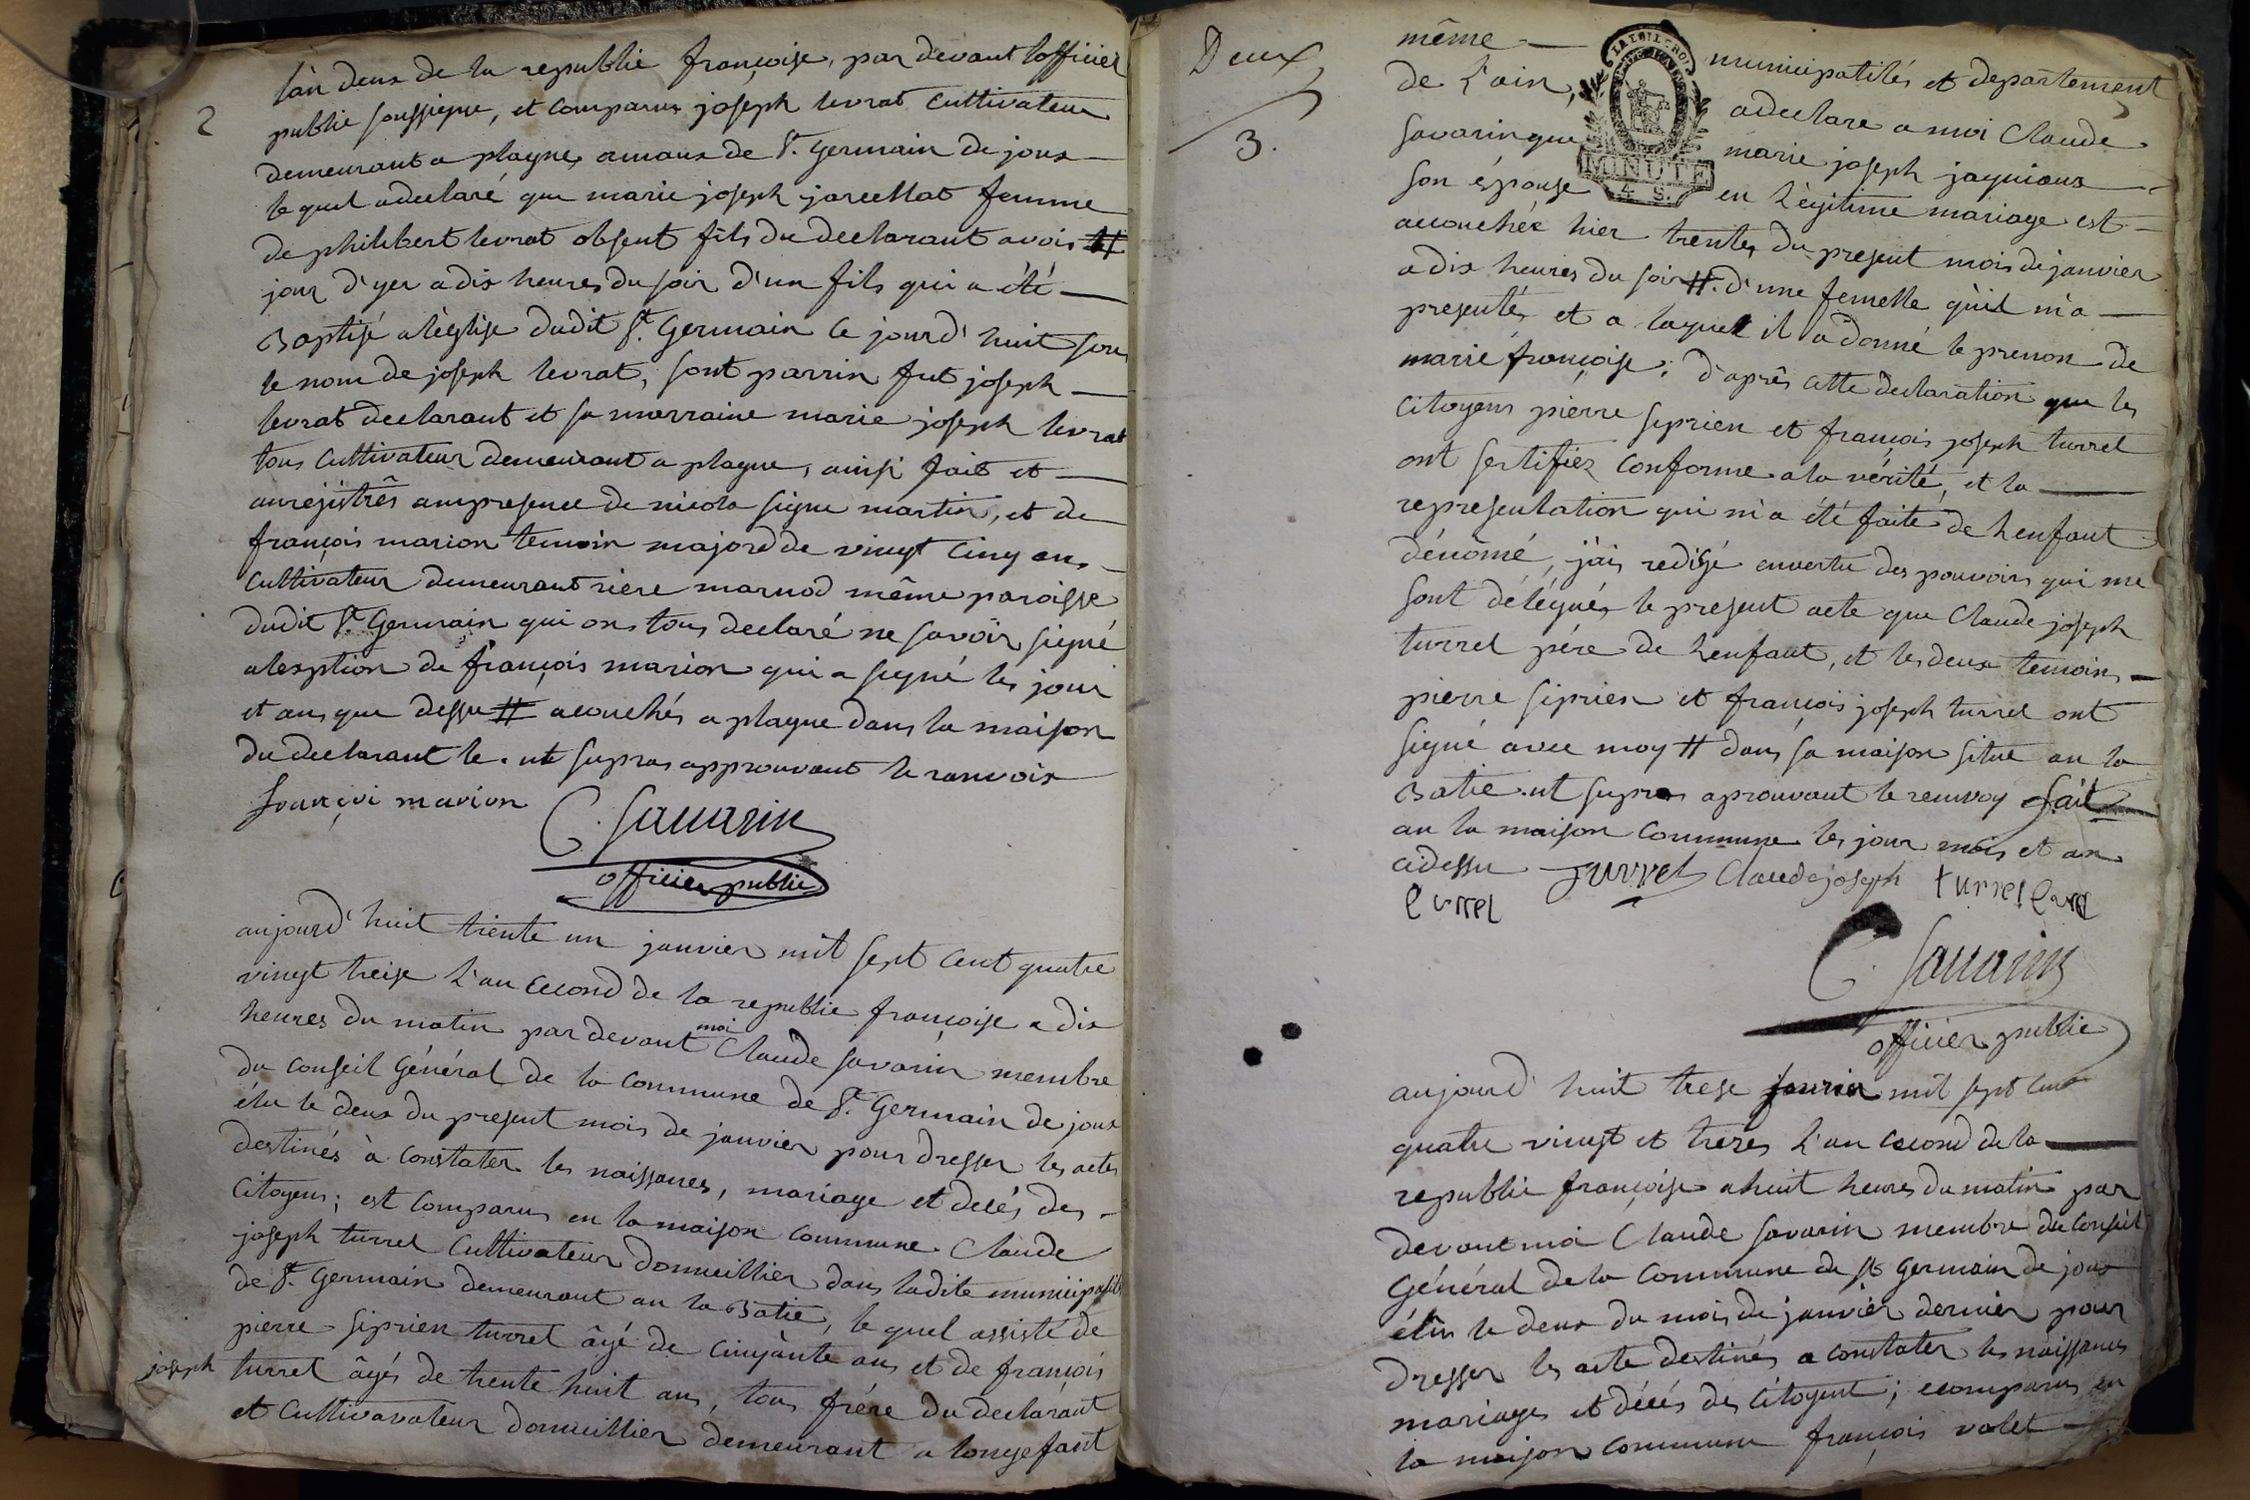 2
lan deux de la republic françoise, par devant lofficier
public soussigne, et comparus joseph levrat cultivateur
demeurant a plagne, amaux de St. Germain de joux
le quel adeclaré que marie joseph jarcellat femme
de philibert levrat absent fils du declarant avois #
jour d'yer a dix heures du soir d'un fils qui a été
Baptisé aléglise dudit St. Germain ce jourd'huit sou
le nom de joseph levrat, sont parrin fut joseph
levrat declarant et sa marraine marie joseph levrat
tous cultivateur demeurant a plagne, ainsi fait et
anrejistrês ampresence de nicola signe martin, et de
françois marion temoin majord de vingt cinq ans
cultivateur demeurant riere marnod même paroisse
dudit St. Germain qui ons tous declaré ne savoir signé
alexption de françois marion qui a signé les jour
et ans que dessu # acouchés a plagne dans la maison
du declarant le . ut supras approuvant le ranvoix
françoi marion C. Savarin
officier public
aujourd'huit trente un janvier mil sept cent quatre
vingt treise l'an cecond de la republic françoise a dix
heures du matin par devant moi Claude savarin membre
du conseil Général de la commune de St. Germain de joux
élu le deux du present mois de janvier pour dresser les actes
destinés à constater les naissances, mariage et decés des
citoyens; est comparus en la maison commune Claude
joseph turrel cultivateur domicillier dans ladite municipalité
de St. Germain demeurant au la Batie, le quel assisté de
pierre siprien turrel âgé de cinqànte ans et de françois
joseph turrel âgés de trente huit ans, tous frére du declarant
et cultivavateur domicillier demeurant a longefant
Deux
3.
même municipalités et departement
de l'ain, adeclare a moi Claude
savarin que marie joseph jaquioux
son épouse en légitime mariage est
accouchée hier trente, du present mois de janvier
a dix heures du soir #. d'une femelle qu'il m'a
presentés et a laquel il a donné le prenon de
marie françoise; d'aprês cette declaration que les
citoyens pierre siprien et françois joseph turrel
ont sertifiez conforme a la vérité, et la
representation qui m'a été faite de lenfant
dénomé, j'ais redigé anvertu des pouvoirs qui me
sont délégués le present acte que Claude joseph
turrel pére de lenfant, et les deux temoins
pierre siprien et françois joseph turrel ont
signé avec moy # dans sa maison situe au la
Batie . ut supras aprouvant le renvoy fait
an la maison commune les jour mois et an
cidessu turrel Claude joseph turrel
turrel
C. Savarin
officier public
LA LOI LE ROI
MINUTE
4 S.
aujourd'huit trese mil sept cent
quatre vingt et treses l'an cecond de la
republic françoise a huit heures du matin par
devant moi Claude savarin membre du conseil
Général de la Commune de St Germain de joux
élus le deux du mois de janvier dernier pour
dresser les acte destinés a constater les naissances
mariages et décés des citoyent; ecomparus en
la maison commune françois valet